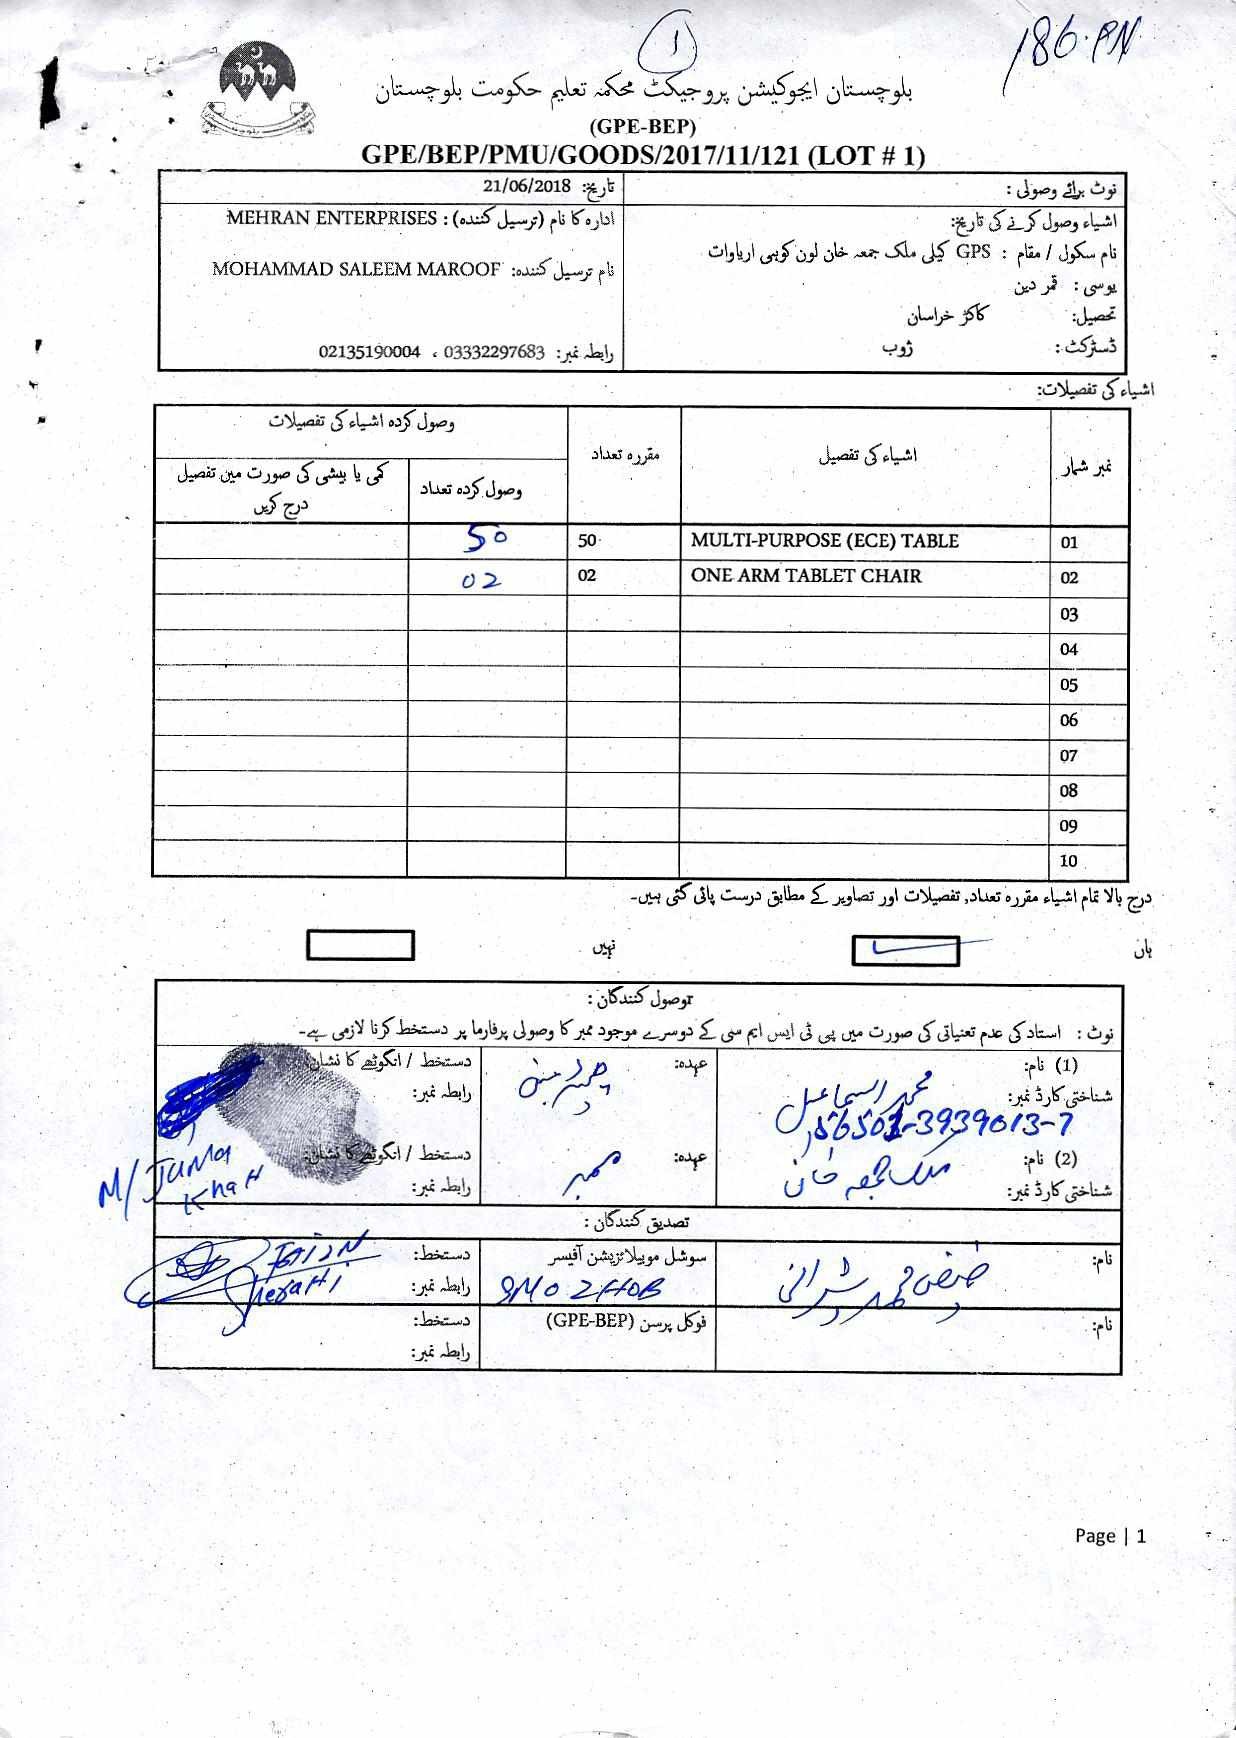 1
186.PN
بلوچستان ایجوکیشن پروجیکٹ محکمہ تعلیم حکومت بلوچستان
(GPE-BEP)
GPE/BEP/PMU/GOODS/2017/11/121 (LOT # 1)
نوٹ برائے وصولی :
تاریخ: 21/06/2018
اشیاء وصول کرنے کی تاریخ:
نام سکول / مقام : GPS کیلی ملک جمعہ خان لون کوہی اریاوات
یوسی : قمر دین
تحصیل: کاکڑ خراسان
ڈسٹرکٹ: ژوب
ادارہ کا نام (ترسیل کنندہ) : MEHRAN ENTERPRISES
نام ترسیل کنندہ: MOHAMMAD SALEEM MAROOF
رابطہ نمبر: 03332297683 ، 02135190004
اشیاء کی تفصیلات:
نمبر شمار اشیاء کی تفصیل مقررہ تعداد وصول کردہ اشیاء کی تفصیلات
وصول کردہ تعداد کمی یا بیشی کی صورت مین تفصیل درج کریں
01 MULTI-PURPOSE (ECE) TABLE 50 50
02 ONE ARM TABLET CHAIR 02 02
03
04
05
06
07
08
09
10
درج بالا تمام اشیاء مقررہ تعداد, تفصیلات اور تصاویر کے مطابق درست پائی گئی ہیں۔
ہاں نہیں
وصول کنندگان :
نوٹ : استاد کی عدم تعنیاتی کی صورت میں پی ٹی ایس ایم سی کے دوسرے موجود ممبر کا وصولی پرفارما پر دستخط کرنا لازمی ہے۔
(1) نام: محمد اسماعیل عہدہ: چیئرمین دستخط / انگوٹھے کا نشان:
شناختی کارڈ نمبر: 56502-3939013-7 رابطہ نمبر:
(2) نام: ملک جمعہ خان عہدہ: ممبر دستخط / انگوٹھے کا نشان:
شناختی کارڈ نمبر: رابطہ نمبر:
M/Juma Khan
تصدیق کنندگان :
نام: فیض محمد شیرانی سوشل موبیلائزیشن آفیسر SMO ZHOB دستخط:
رابطہ نمبر:
نام: فوکل پرسن (GPE-BEP) دستخط:
رابطہ نمبر:
Page | 1